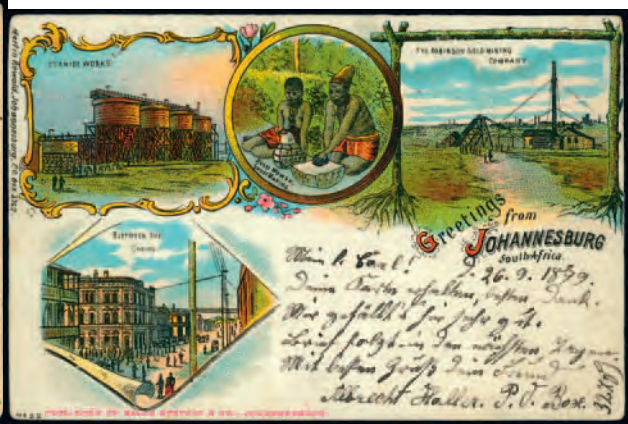 CYANIDE WORKS
THE ROBINSON GOLD MINING
COMPANY
Greetings
from
JOHANNESBURG
South Africa
BETWEEN THE
CHAINS
Mein l. Carl!
26. 9. 1899.
Deine Karte erhalten, besten Dank.
Mir gefällt's hier sehr gut.
Brief folgt in den nächsten Tagen.
Mit besten Gruß Dein Freund
Albrecht Haller. P. O. Box.